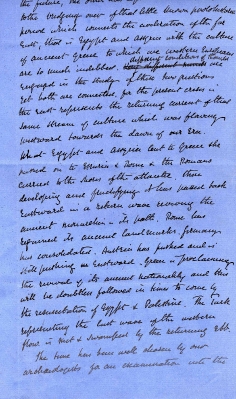 the future, the
to the bridging over of that little known protohistoric
period which connects the civilization of the far
East, that is Egypt and Assyria with the culture
of ancient Greece to which we western Europeans
are so much indebted.
engaged in the study of these two questions
yet both are connected, for the present crisis in
the East represents the returning current of that
same stream of culture which was flowing
westward towards the dawn of our Era.
What Egypt and Assyria lent to Greece she
moved on to Etruria & Rome & the Romans
carried to the shores of the Atlantic. There
developing and fructifying it has passed back
Eastward in a return wave reviving the
ancient in its path. Rome has
regained its ancient landmarks, Germany
has consolidated. Austria has pushed and is
still pushing on Eastward. Greece is proclaiming
the revival of its ancient nationality and this
will be doubtless followed in time to come by
the resuscitation of Egypt & Palestine. The Turk
representing the last wave of the western
flow is met & swamped by the returning ebb.
The time has been well chosen by our
archaeologists for an examination into the